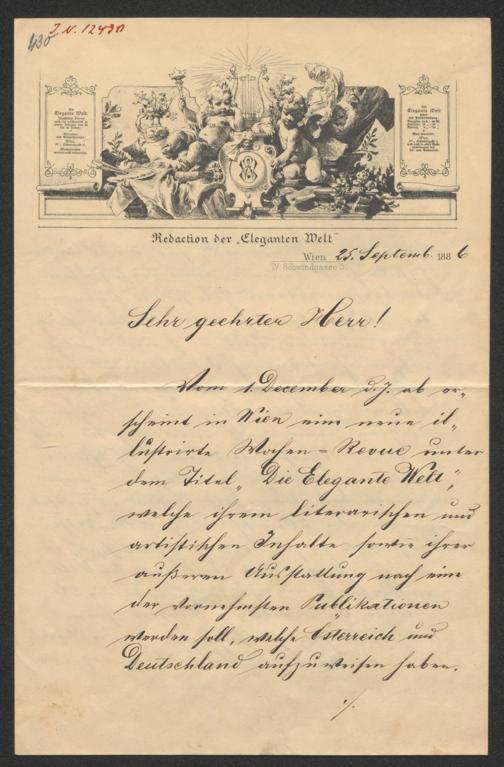 430
J. N. 12430
Die
Elegante Welt
Die
Elegante Welt
Redaction der „Eleganten Welt"
Wien 25. Septemb. 1886
IV. Schwindgasse 3.
Sehr geehrter Herr!
Vom 1. December d. J. ab er-
scheint in Wien eine neue il-
lustrirte Wochen-Revue unter
dem Titel „Die Elegante Welt",
welche ihrem literarischen und
artistischen Inhalte sowie ihrer
äußeren Ausstattung nach eine
der vornehmsten Publikationen
werden soll, welche Österreich und
Deutschland aufzuweisen haben.
./.